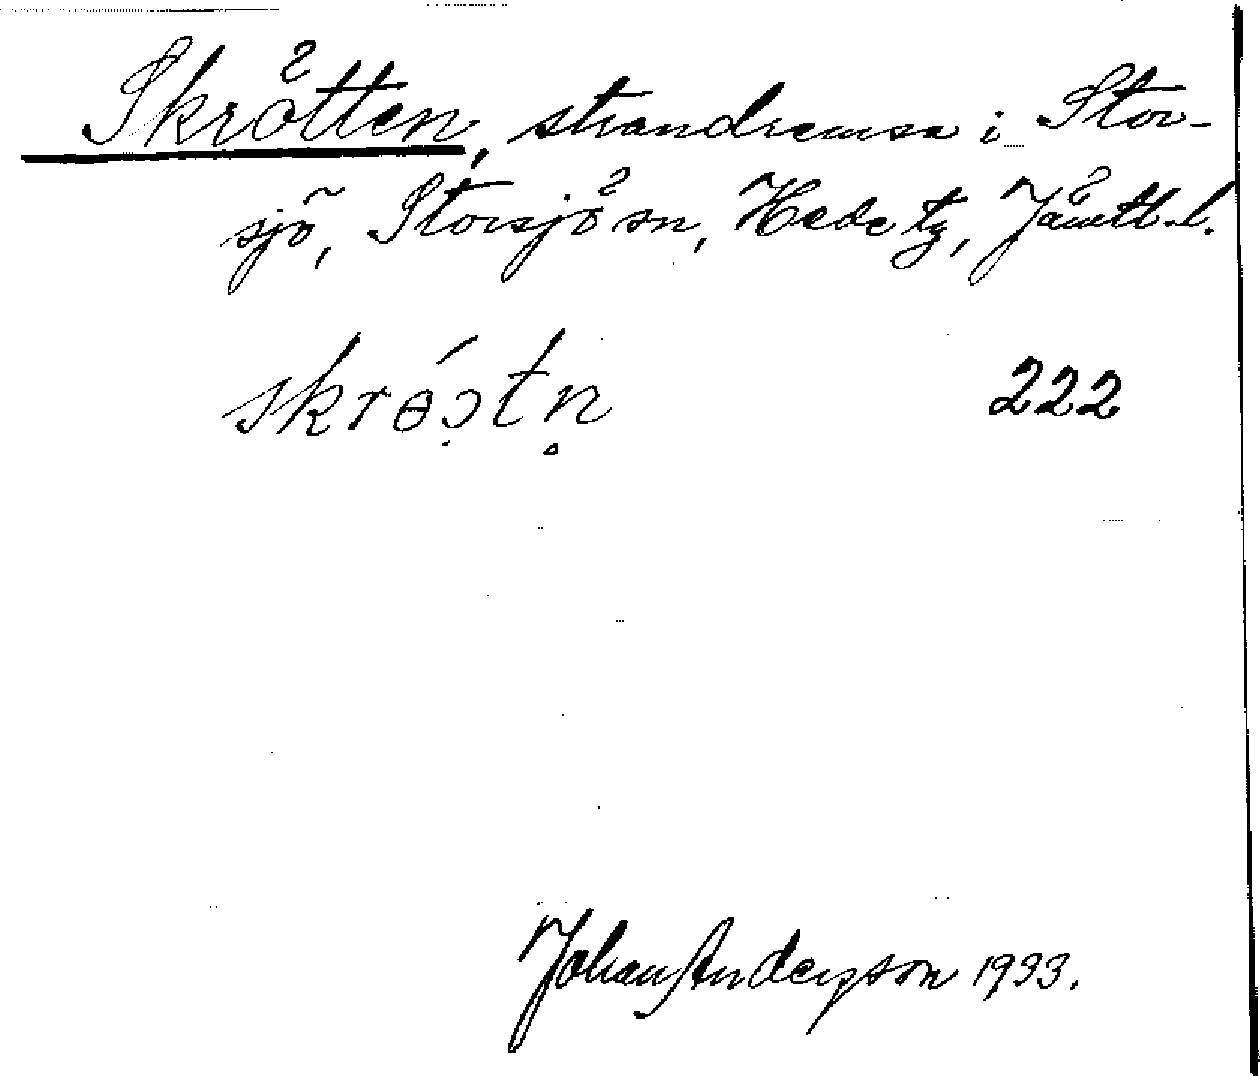 Skrötten, strandremsa i Stor-
sjö, Storsjö sn, Hede tg, Jämtl. l.
skrɵ́ɔ̣tn̥
222
Johan Anderson 1933.